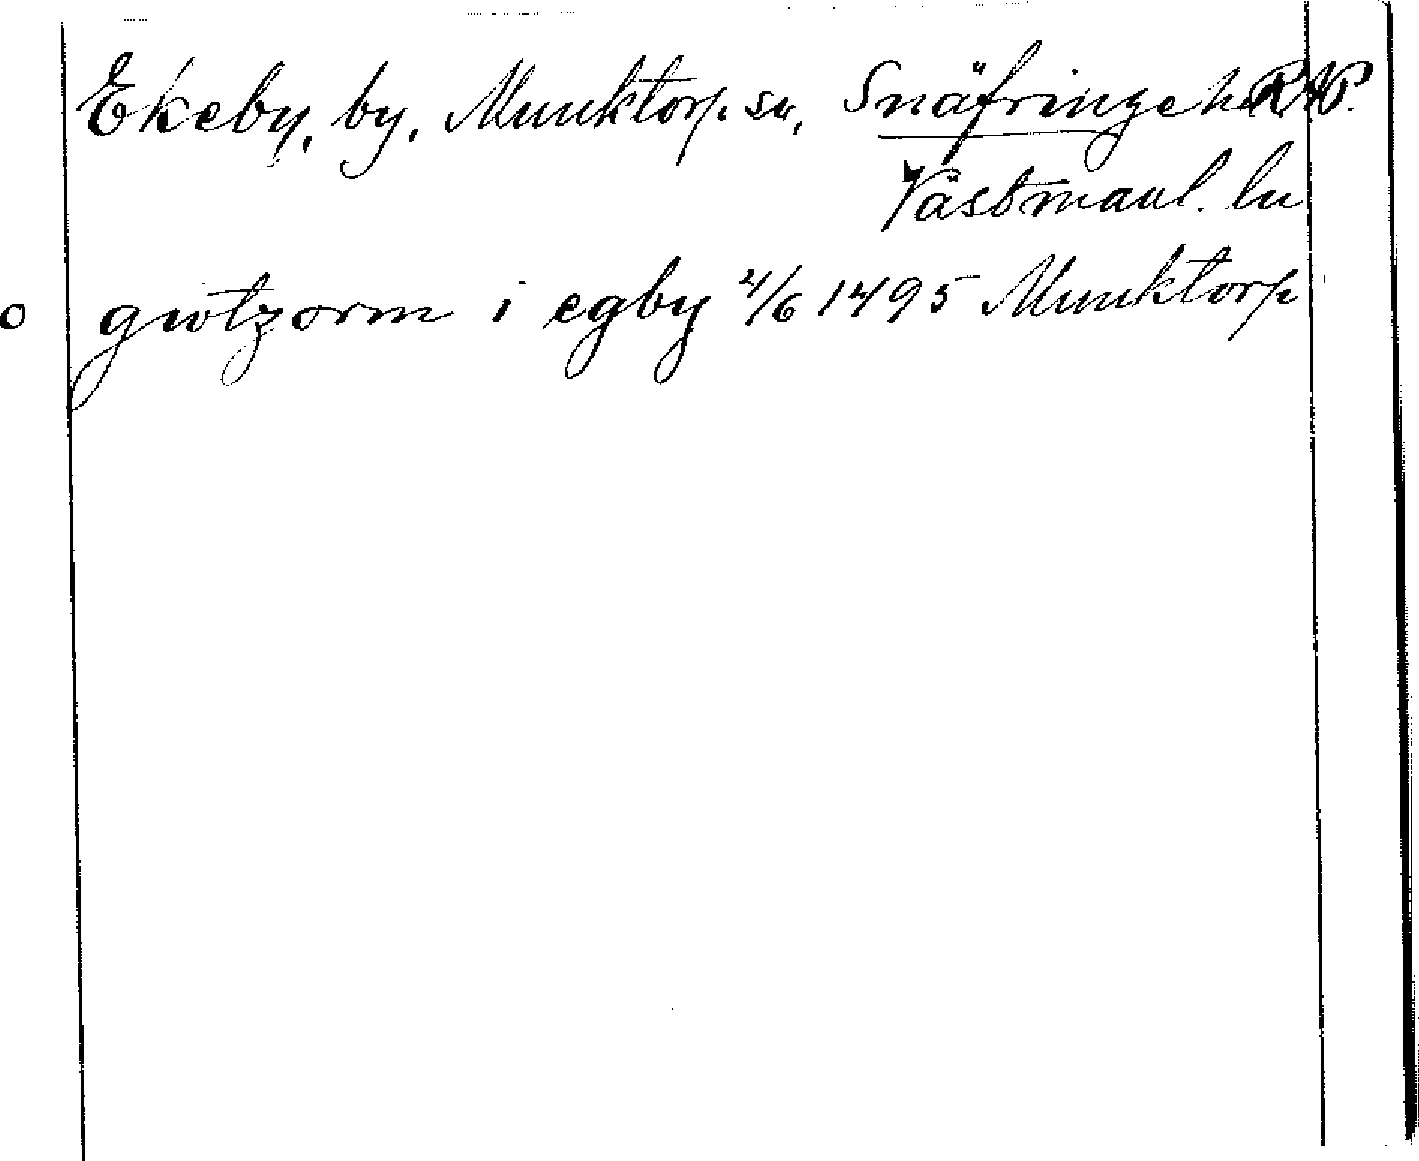 Ekeby, by, Munktorp sn, Snäfringe hd
Västmanl. ln
o gwtzorm i egby 4/6 1495 Munktorp